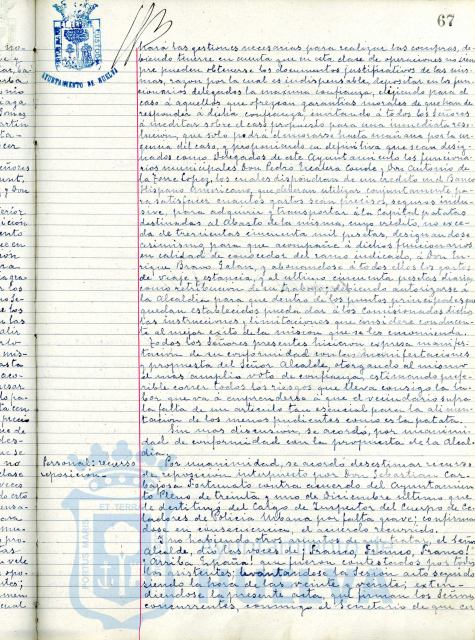 67
AYUNTAMIENTO DE HUELVA
para las gestiones necesarias para realizar las compras, de-
biendo tenerse en cuenta que en esta clase de operaciones no siem-
pre pueden obtenerse los documentos justificativos de las mis-
mas, razon por la cual es indispensable, depositar en los fun-
cionarios delegados la maxima confianza, eligiendo para el
caso a aquellos que ofrezcan garantias morales de que han de
responder a dicha confianza, invitando a todos los señores
a meditar sobre el caso propuesto para una inmediata reso-
lucion, que solo podrá demorarse hasta mañana por la ur-
gencia del caso, y proponiendo en definitiva que sean desig-
nados como Delegados de este Ayuntamiento los funciona-
rios municipales Don Pedro Vicalera Canelo y Don Antonio de
la Torre Lopez, los cuales dispondran de un credito en el Banco
Hispano Americano, que deberan utilizar conjuntamente pa-
ra satisfacer cuantos gastos sean precisos, seguros inclu-
sive, para adquirir y transportar a la Capital patatas
destinadas al Abasto de la misma, cuyo credito, no exce-
da de trescientas cincuenta mil pesetas, designandose
asimismo para que acompañe a dichos funcionarios
en calidad de conocedor del ramo indicado, a Don En-
rique Bravo Galan, y abonandose a todos ellos los gastos
de viaje y estancia, y al ultimo cincuenta pesetas diarias
como retribucion de su trabajo; debiendo autorizarse a
la Alcaldia para que dentro de los puntos principales que
quedan establecidos pueda dar a los comisionados dichos
las instrucciones y limitaciones que considere conducen-
te al mejor exito de la mision que se les encomienda.
Todos los Señores presentes hicieron expresa manifes-
tacion de su conformidad con las manifestaciones
y propuesta del Señor Alcalde, otorgando al mismo
el mas amplio voto de confianza, estimando prefe-
rible correr todos los riesgos que lleva consigo la la-
bor que va a emprenderse a que el vecindario sufra
la falta de un articulo tan esencial para la alimen-
tacion de los menos pudientes como es la patata.
Sin mas discusion, se acordó, por unanimi-
dad de conformidad con la propuesta de la Alcal-
dia.
Personal: recurso
reposicion.
Por unanimidad, se acordó desestimar recurso
de reposicion interpuesto por Don Sebastian Car-
bajosa Fortunato contra acuerdo del Ayuntamien-
to Pleno de treinta y uno de Diciembre ultimo que
le destituyó del Cargo de Inspector del Cuerpo de Ce-
ladores de Policia Urbana por falta grave; confirman-
dose en consecuencia, el acuerdo recurrido.
Y no habiendo otros asuntos de que tratar, el Señor
Alcalde, dió las voces de ¡Franco, Franco, Franco!
¡Arriba España! que fueron contestados por todos
los asistentes; levantandose la Sesión acto seguido
siendo la hora de las veinte y veinte; exten-
diendose la presente acta, que firman los Señores
concurrentes, conmigo el Secretario de que cer-